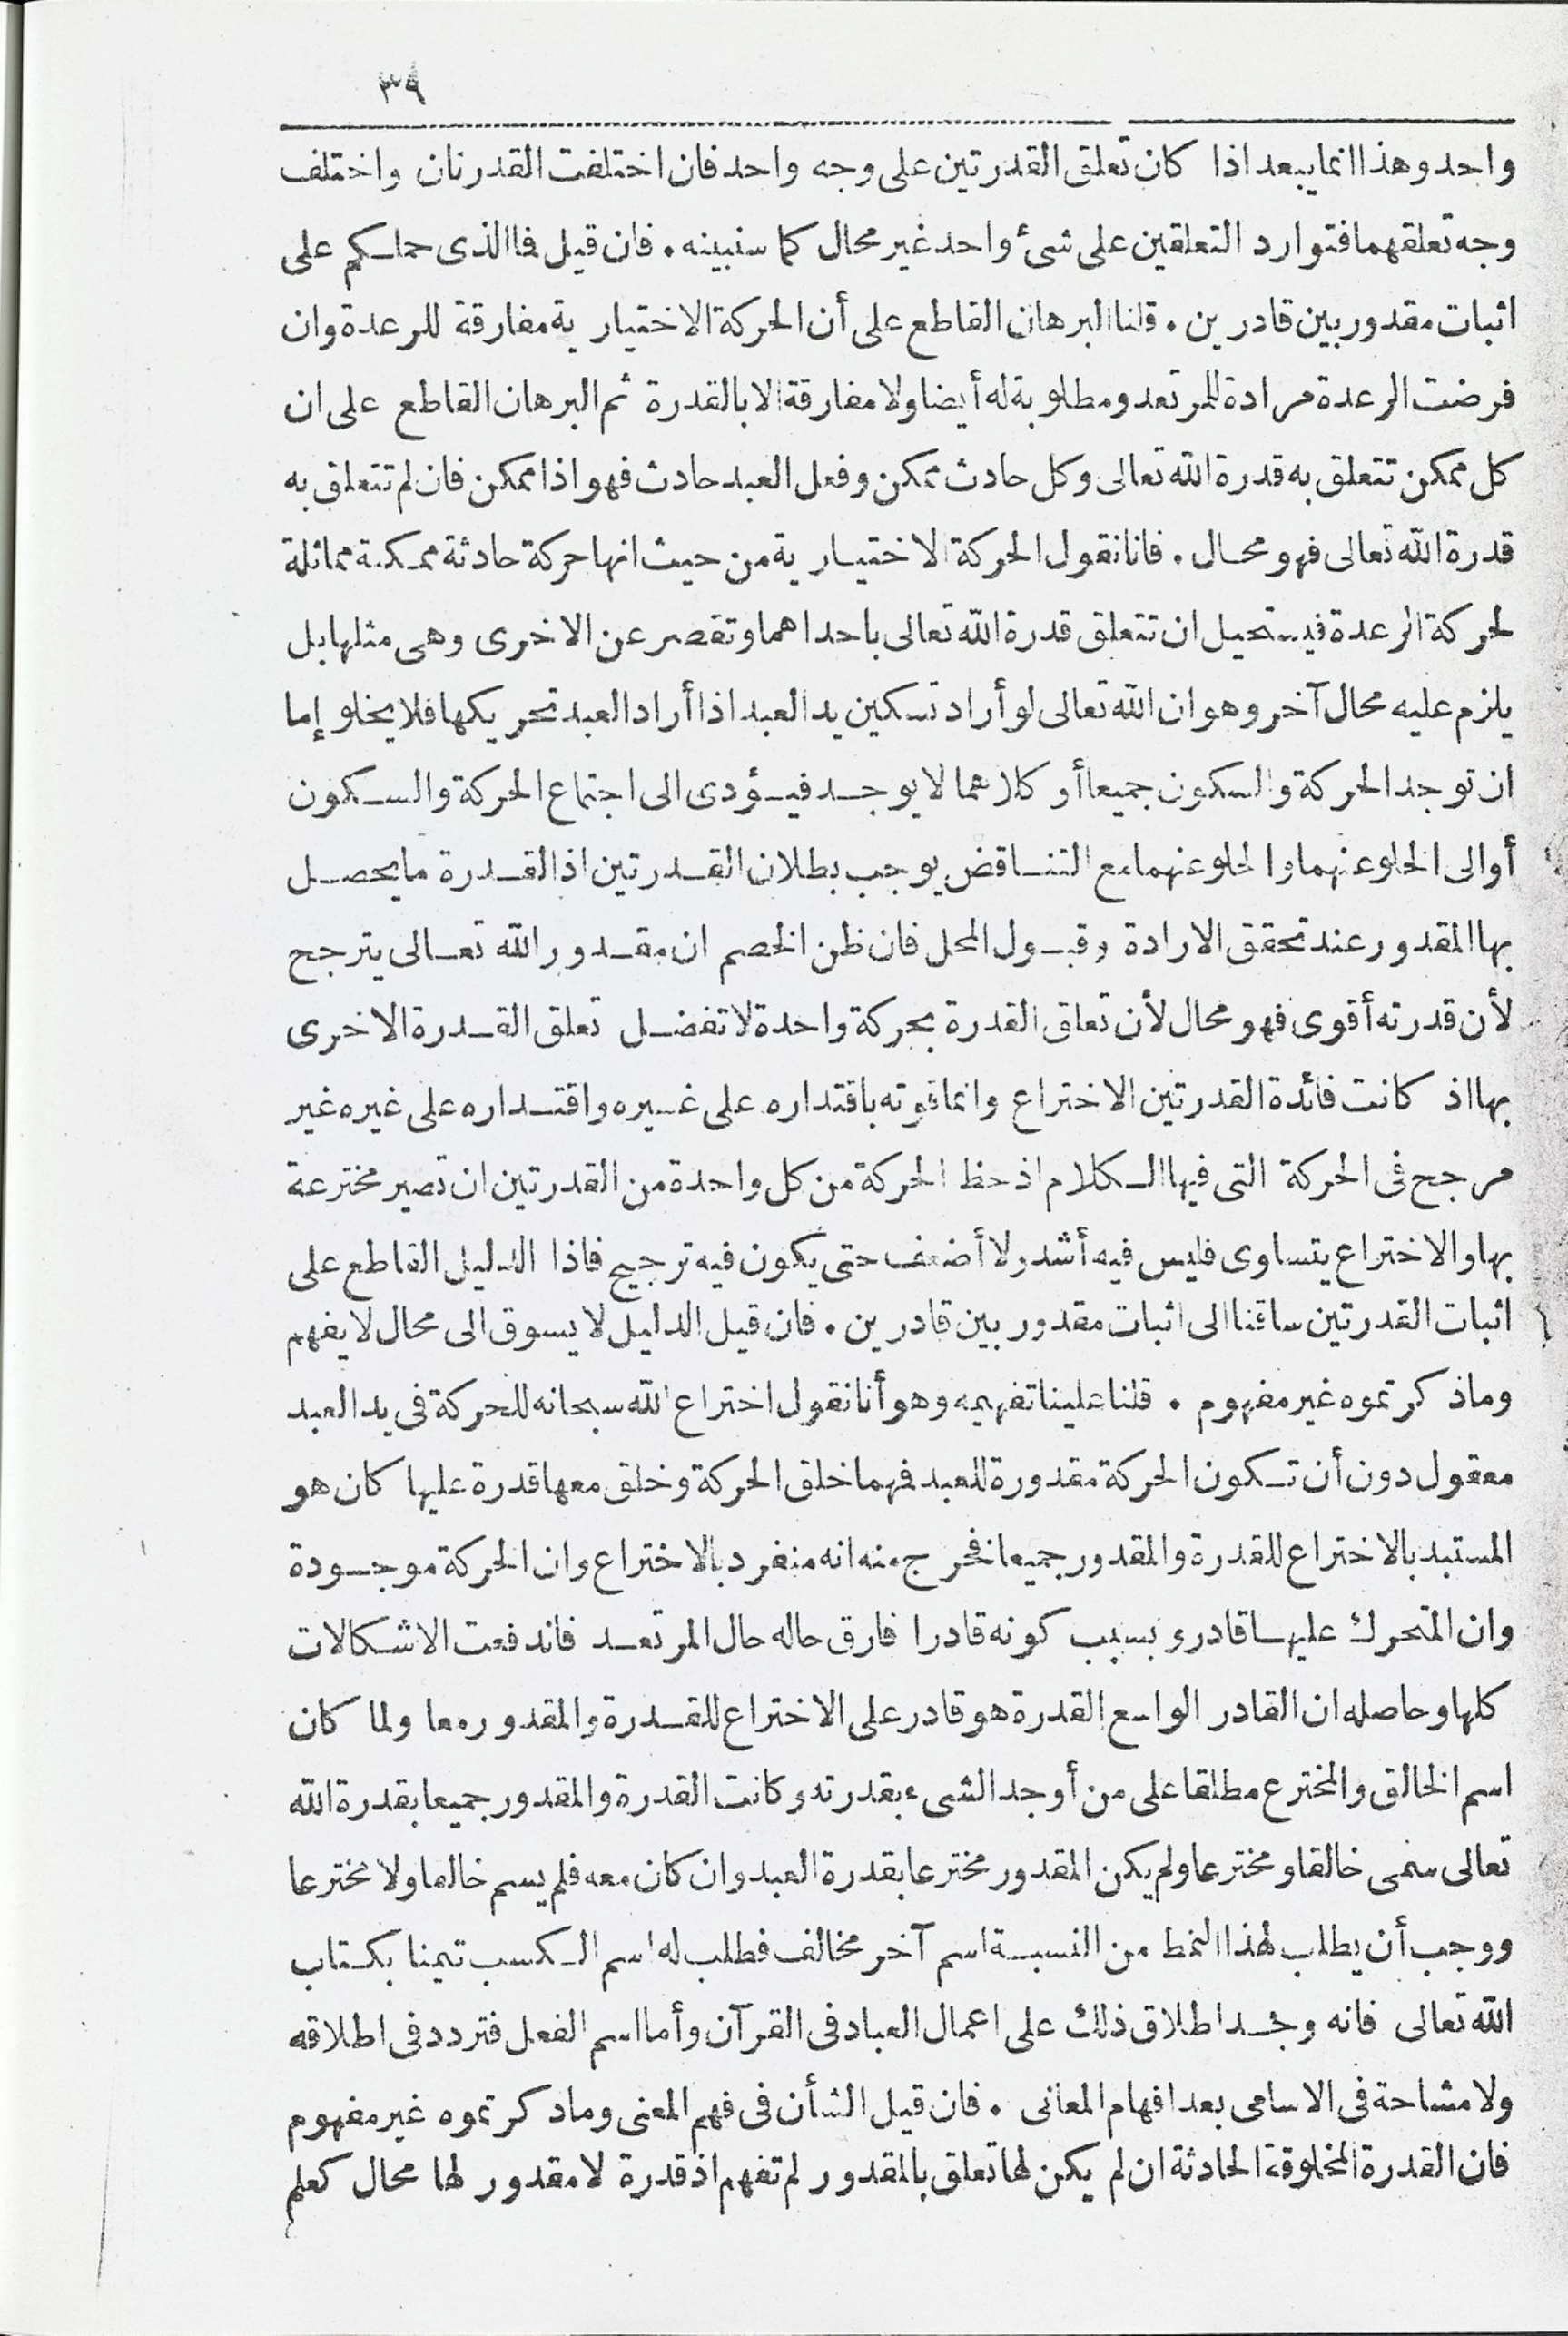 ٣٩
واحد وهذا انما يبعد اذا كان تعلق القدرتين على وجه واحد فان اختلفت القدرتان واختلف
وجه تعلقهما فتوارد التعلقين على شئ واحد غير محال كما سنبينه . فان قيل فما الذى حملكم على
اثبات مقدور بين قادرين . قلنا البرهان القاطع على أن الحركة الاختيارية مفارقة للرعدة وان
فرضت الرعدة مرادة للمرتعد ومطلوبة له أيضا ولا مفارقة الا بالقدرة ثم البرهان القاطع على ان
كل ممكن تتعلق به قدرة الله تعالى وكل حادث ممكن وفعل العبد حادث فهو اذا ممكن فان لم تتعلق به
قدرة الله تعالى فهو محال . فانا نقول الحركة الاختيارية من حيث انها حركة حادثة ممكنة مماثلة
لحركة الرعدة فيستحيل ان تتعلق قدرة الله تعالى باحداهما وتقصر عن الاخرى وهى مثلها بل
يلزم عليه محال آخر وهو ان الله تعالى لو أراد تسكين يد العبد اذا أراد العبد تحريكها فلا يخلو إما
ان توجد الحركة والسكون جميعا أو كلاهما لا يوجد فيؤدى الى اجتماع الحركة والسكون
أوالى الخلو عنهما والخلو عنهما مع التناقض يوجب بطلان القدرتين اذ القدرة ما يحصل
بها المقدور عند تحقق الارادة وقبول المحل فان ظن الخصم ان مقدور الله تعالى يترجح
لأن قدرته أقوى فهو محال لأن تعلق القدرة بحركة واحدة لا تفضل تعلق القدرة الاخرى
بها اذ كانت فائدة القدرتين الاختراع وانما قوته باقتداره على غيره واقتداره على غيره غير
مرجح فى الحركة التى فيها الكلام اذ حظ الحركة من كل واحدة من القدرتين ان تصير مخترعة
بها والاختراع يتساوى فليس فيه أشد ولا أضعف حتى يكون فيه ترجيح فاذا الدليل القاطع على
اثبات القدرتين ساقنا الى اثبات مقدور بين قادرين . فان قيل الدليل لا يسوق الى محال لا يفهم
وما ذكرتموه غير مفهوم . قلنا علينا تفهيمه وهو أنا نقول اختراع الله سبحانه للحركة فى يد العبد
معقول دون أن تكون الحركة مقدورة للعبد فهما خلق الحركة وخلق معها قدرة عليها كان هو
المستبد بالاختراع للقدرة والمقدور جميعا فخرج منه انه منفرد بالاختراع وان الحركة موجودة
وان المتحرك عليها قادر و بسبب كونه قادرا فارق حاله حال المرتعد فاندفعت الاشكالات
كلها وحاصله ان القادر الواسع القدرة هو قادر على الاختراع للقدرة والمقدور معا ولما كان
اسم الخالق والمخترع مطلقا على من أوجد الشىء بقدرته وكانت القدرة والمقدور جميعا بقدرة الله
تعالى سمى خالقا ومخترعا ولم يكن المقدور مخترعا بقدرة العبد وان كان معه فلم يسم خالقا ولا مخترعا
ووجب أن يطلب لهذا النمط من النسبة اسم آخر مخالف فطلب له اسم الكسب تيمنا بكتاب
الله تعالى فانه وجد اطلاق ذلك على اعمال العباد فى القرآن وأما اسم الفعل فتردد فى اطلاقه
ولا مشاحة فى الاسامى بعد افهام المعانى . فان قيل الشأن فى فهم المعنى وما ذكرتموه غير مفهوم
فان القدرة المخلوقة الحادثة ان لم يكن لها تعلق بالمقدور لم تفهم اذ قدرة لا مقدور لها محال كعلم